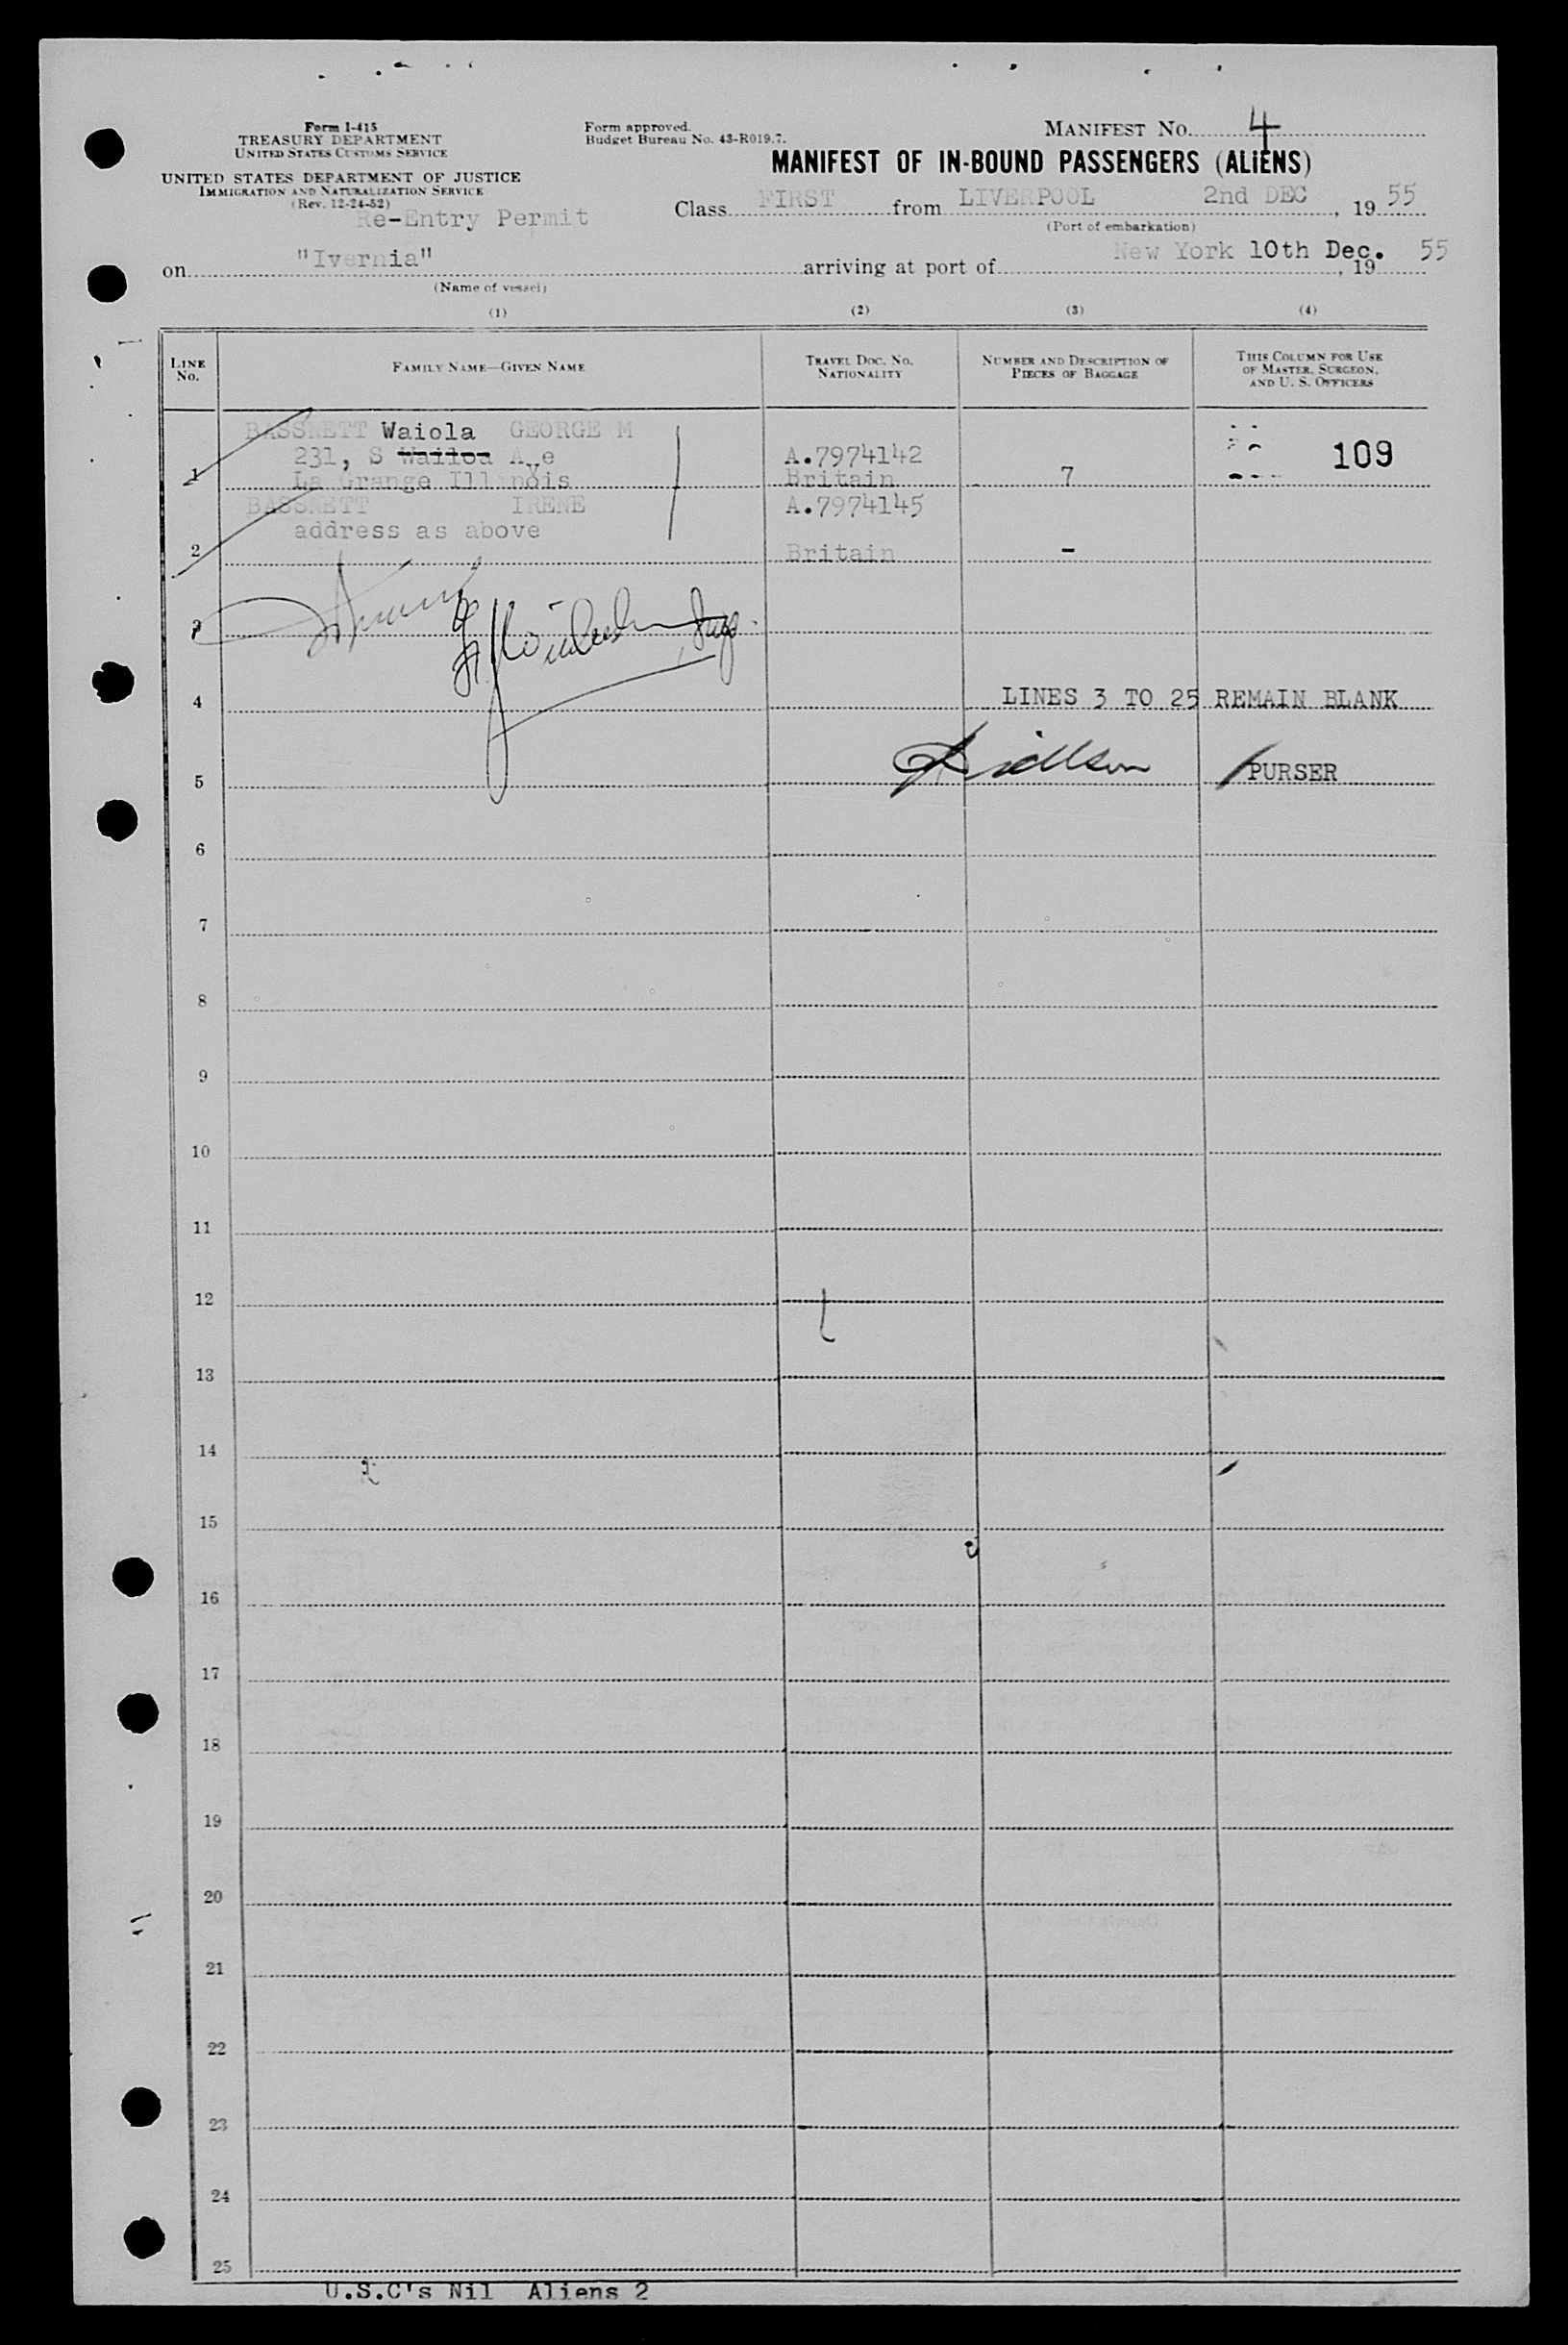 Form I-415
TREASURY DEPARTMENT
UNITED STATES CUSTOMS SERVICE
UNITED STATES DEPARTMENT OF JUSTICE
IMMIGRATION AND NATURALIZATION SERVICE
(Rev. 12-24-52)
Re-Entry Permit
Form approved.
Budget Bureau No. 43-R019.7.
MANIFEST No. 4
MANIFEST OF IN-BOUND PASSENGERS (ALIENS)
Class FIRST from LIVERPOOL 2nd DEC, 19 55
(Port of embarkation)
on "Ivernia" arriving at port of New York 10th Dec., 19 55
(Name of vessel)
(1) (2) (3) (4)
LINE No. FAMILY NAME—GIVEN NAME TRAVEL DOC. NO. NATIONALITY NUMBER AND DESCRIPTION OF PIECES OF BAGGAGE THIS COLUMN FOR USE OF MASTER, SURGEON, AND U. S. OFFICERS
BASSNETT Waiola GEORGE M
231, S Wailoa Ave A.7974142 109
1 La Grange Illinois Britain 7
BASSNETT IRENE A.7974145
address as above
2 Britain -
3
4 LINES 3 TO 25 REMAIN BLANK
5 PURSER
6
7
8
9
10
11
12
13
14
15
16
17
18
19
20
21
22
23
24
25
U.S.C's Nil Aliens 2